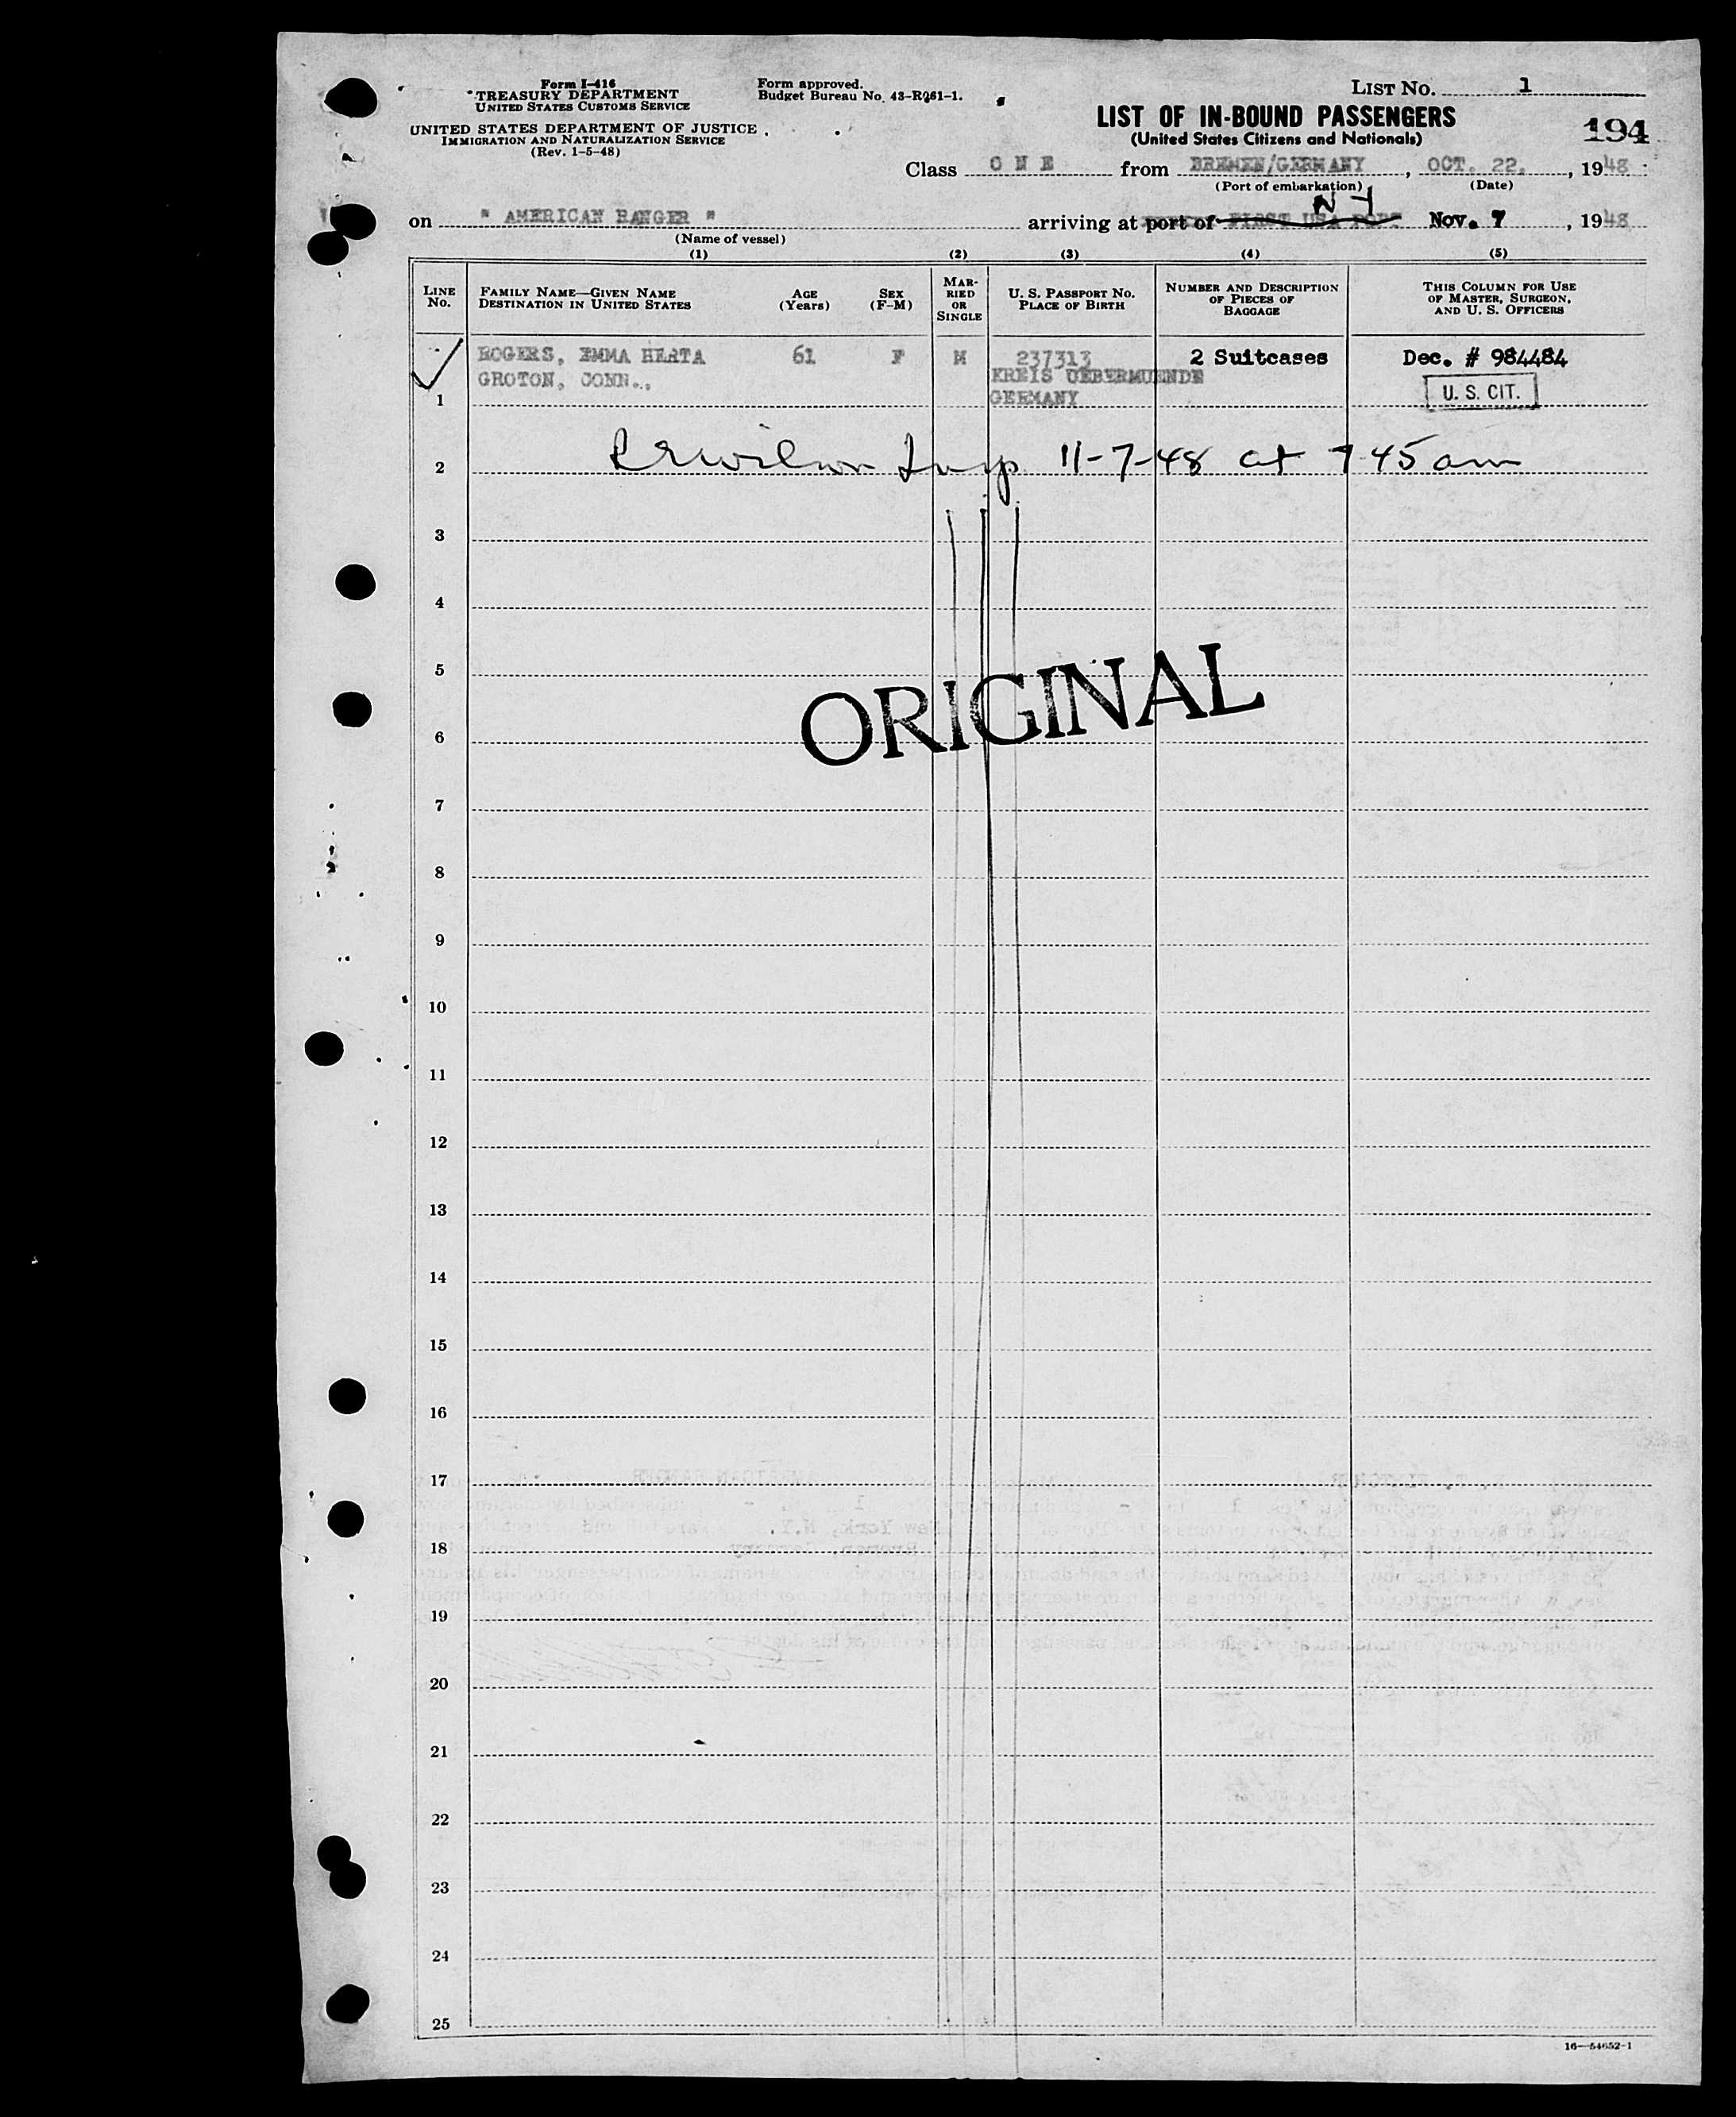 Form I-416
TREASURY DEPARTMENT
UNITED STATES CUSTOMS SERVICE
UNITED STATES DEPARTMENT OF JUSTICE
IMMIGRATION AND NATURALIZATION SERVICE
(Rev. 1-5-48)
Form approved.
Budget Bureau No. 43-R061-1.
LIST NO. 1
LIST OF IN-BOUND PASSENGERS
(United States Citizens and Nationals)
194
Class O N E from BREMEN/GERMANY, OCT. 22, 1948
(Port of embarkation) (Date)
N Y
on " AMERICAN RANGER " arriving at port of FIRST USA PORT Nov. 7, 1948
(Name of vessel)
(1) (2) (3) (4) (5)
LINE No. FAMILY NAME—GIVEN NAME DESTINATION IN UNITED STATES AGE (Years) SEX (F-M) MARRIED OR SINGLE U. S. PASSPORT NO. PLACE OF BIRTH NUMBER AND DESCRIPTION OF PIECES OF BAGGAGE THIS COLUMN FOR USE OF MASTER, SURGEON, AND U. S. OFFICERS
ROGERS, EMMA HERTA 61 F M 237313 2 Suitcases Dec. # 984484
GROTON, CONN., KREIS UEBERMUENDE
1 GERMANY U. S. CIT.
2 Insp 11-7-48 at 7 45 am
3
4
5
ORIGINAL
6
7
8
9
10
11
12
13
14
15
16
17
18
19
20
21
22
23
24
25
16—54652-1